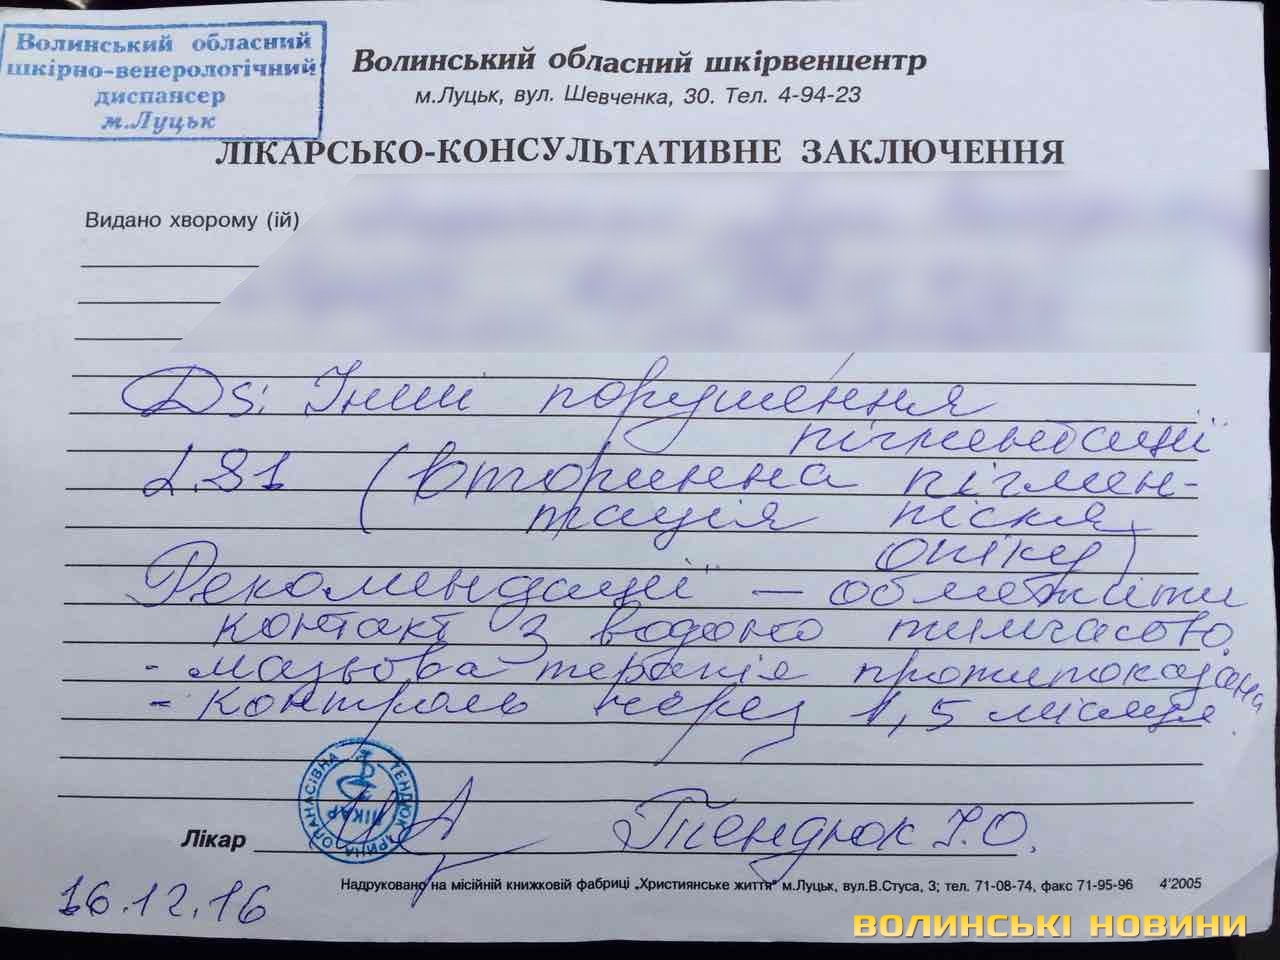 Волинський обласний
шкірно-венерологічний
диспансер
м.Луцьк
Волинський обласний шкірвенцентр
м.Луцьк, вул. Шевченка, 30. Тел. 4-94-23
ЛІКАРСЬКО-КОНСУЛЬТАТИВНЕ ЗАКЛЮЧЕННЯ
Видано хворому (ій)
Ds: Інші порушення
пігментації
L.81 (вторинна пігмен-
тація після
опіку)
Рекомендації — обмежити
контакт з водою тимчасово.
- мазьова терапія протипоказана
- контроль через 1,5 місяця.
ТЕНДЮК ІРИНА ОПАНАСІВНА
ЛІКАР
Лікар Тендюк І.О.
16.12.16
Надруковано на місійній книжковій фабриці „Християнське життя" м.Луцьк, вул.В.Стуса, 3; тел. 71-08-74, факс 71-95-96 4'2005
ВОЛИНСЬКІ НОВИНИ